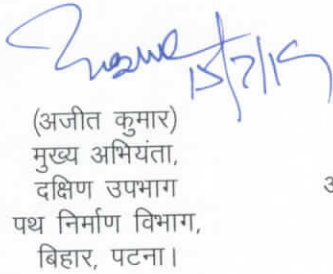 15/7/19
(अजीत कुमार)
मुख्य अभियंता,
दक्षिण उपभाग
पथ निर्माण विभाग,
बिहार, पटना।